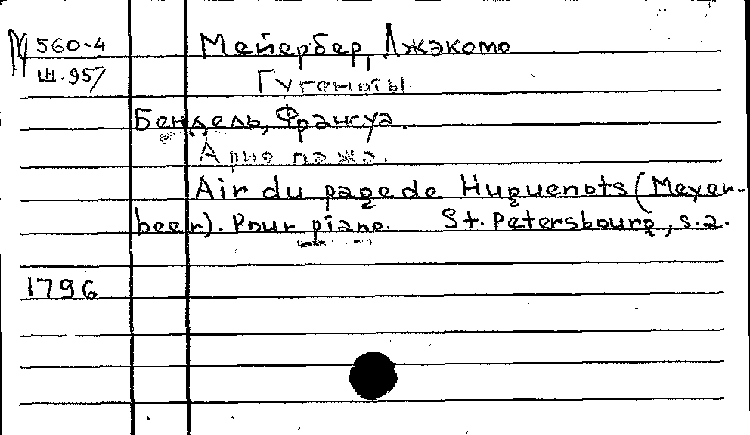 М 560-4 Мейербер, Джэкомо
Ш.957 Гугеноты.
Бендель, Франсуа.
Ария пажа.
Air du page de Huguenots (Meyer-
beer). Pour piano. St. Petersbourg, s.a.
1796